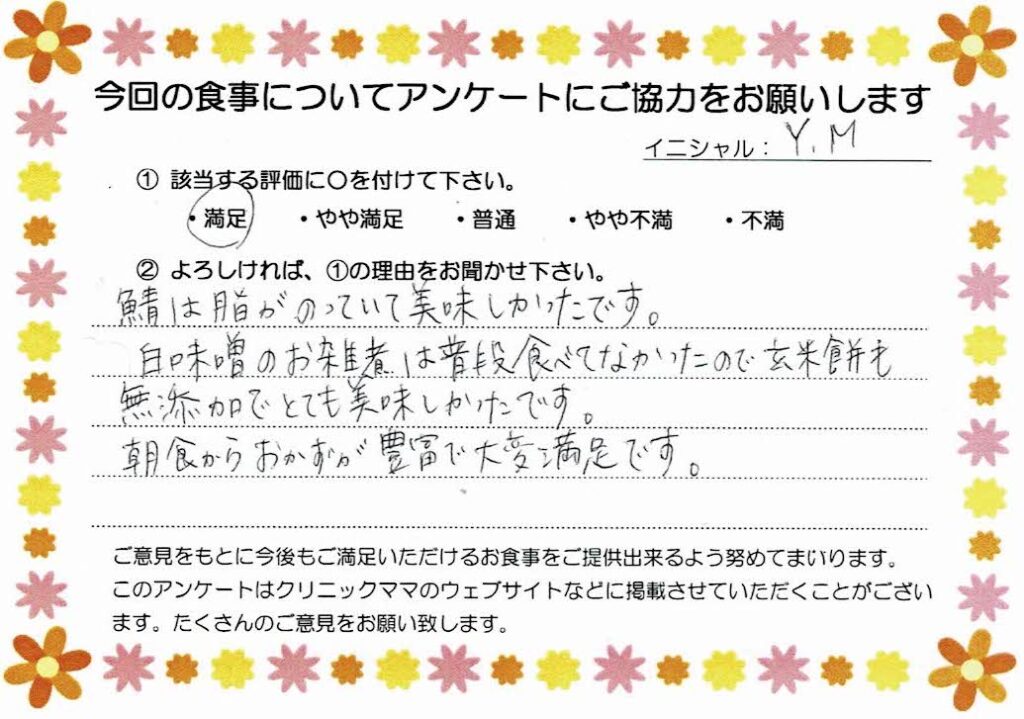 今回の食事についてアンケートにご協力をお願いします
イニシャル： Y.M
① 該当する評価に○を付けて下さい。
・満足 ・やや満足 ・普通 ・やや不満 ・不満
② よろしければ、①の理由をお聞かせ下さい。
鯖は脂がのっていて美味しかったです。
白味噌のお雑煮は普段食べてなかったので玄米餅も
無添加でとても美味しかったです。
朝食からおかずが豊富で大変満足です。
ご意見をもとに今後もご満足いただけるお食事をご提供出来るよう努めてまいります。
このアンケートはクリニックママのウェブサイトなどに掲載させていただくことがござい
ます。たくさんのご意見をお願い致します。